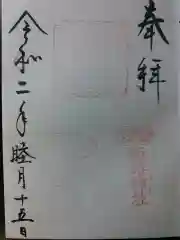 奉拝
令和二年睦月十五日